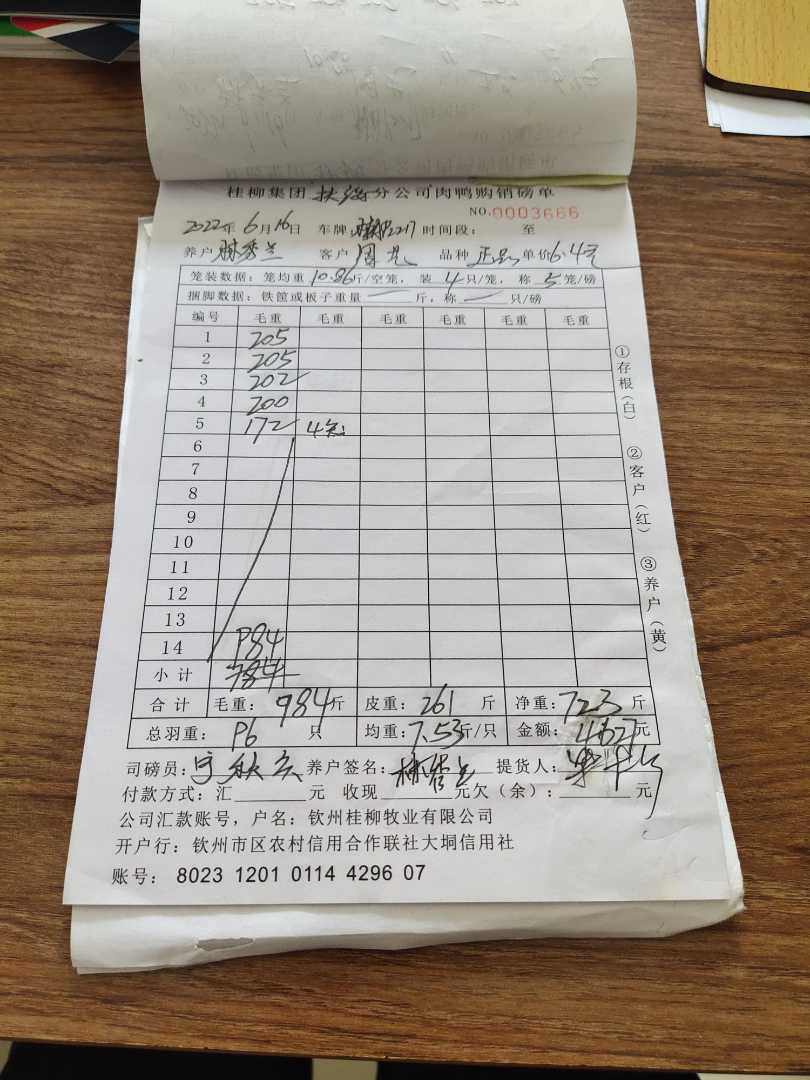 桂柳集团 扶绥 分公司肉鸭购销磅单
NO.0003666
2022年 6月16日 车牌 2217 时间段： 至
养户 林秀兰 客户 周 品种 正品 单价6.4元
笼装数据：笼均重 10.86斤/空笼，装 4只/笼，称 5笼/磅
捆脚数据：铁筐或板子重量 — 斤，称 — 只/磅
编号 毛重 毛重 毛重 毛重 毛重 毛重
1 205
2 205
3 202
4 200
5 172 4笼
6
7
8
9
10
11
12
13
14 984
小计
合计 毛重：984斤 皮重：261 斤 净重：723斤
总羽重：96 只 均重：7.53斤/只 金额：4627元
司磅员： 养户签名：林秀兰 提货人：
付款方式：汇 元 收现 元欠（余）： 元
公司汇款账号，户名：钦州桂柳牧业有限公司
开户行：钦州市区农村信用合作联社大垌信用社
账号：8023 1201 0114 4296 07
①存根（白）
②客户（红）
③养户（黄）